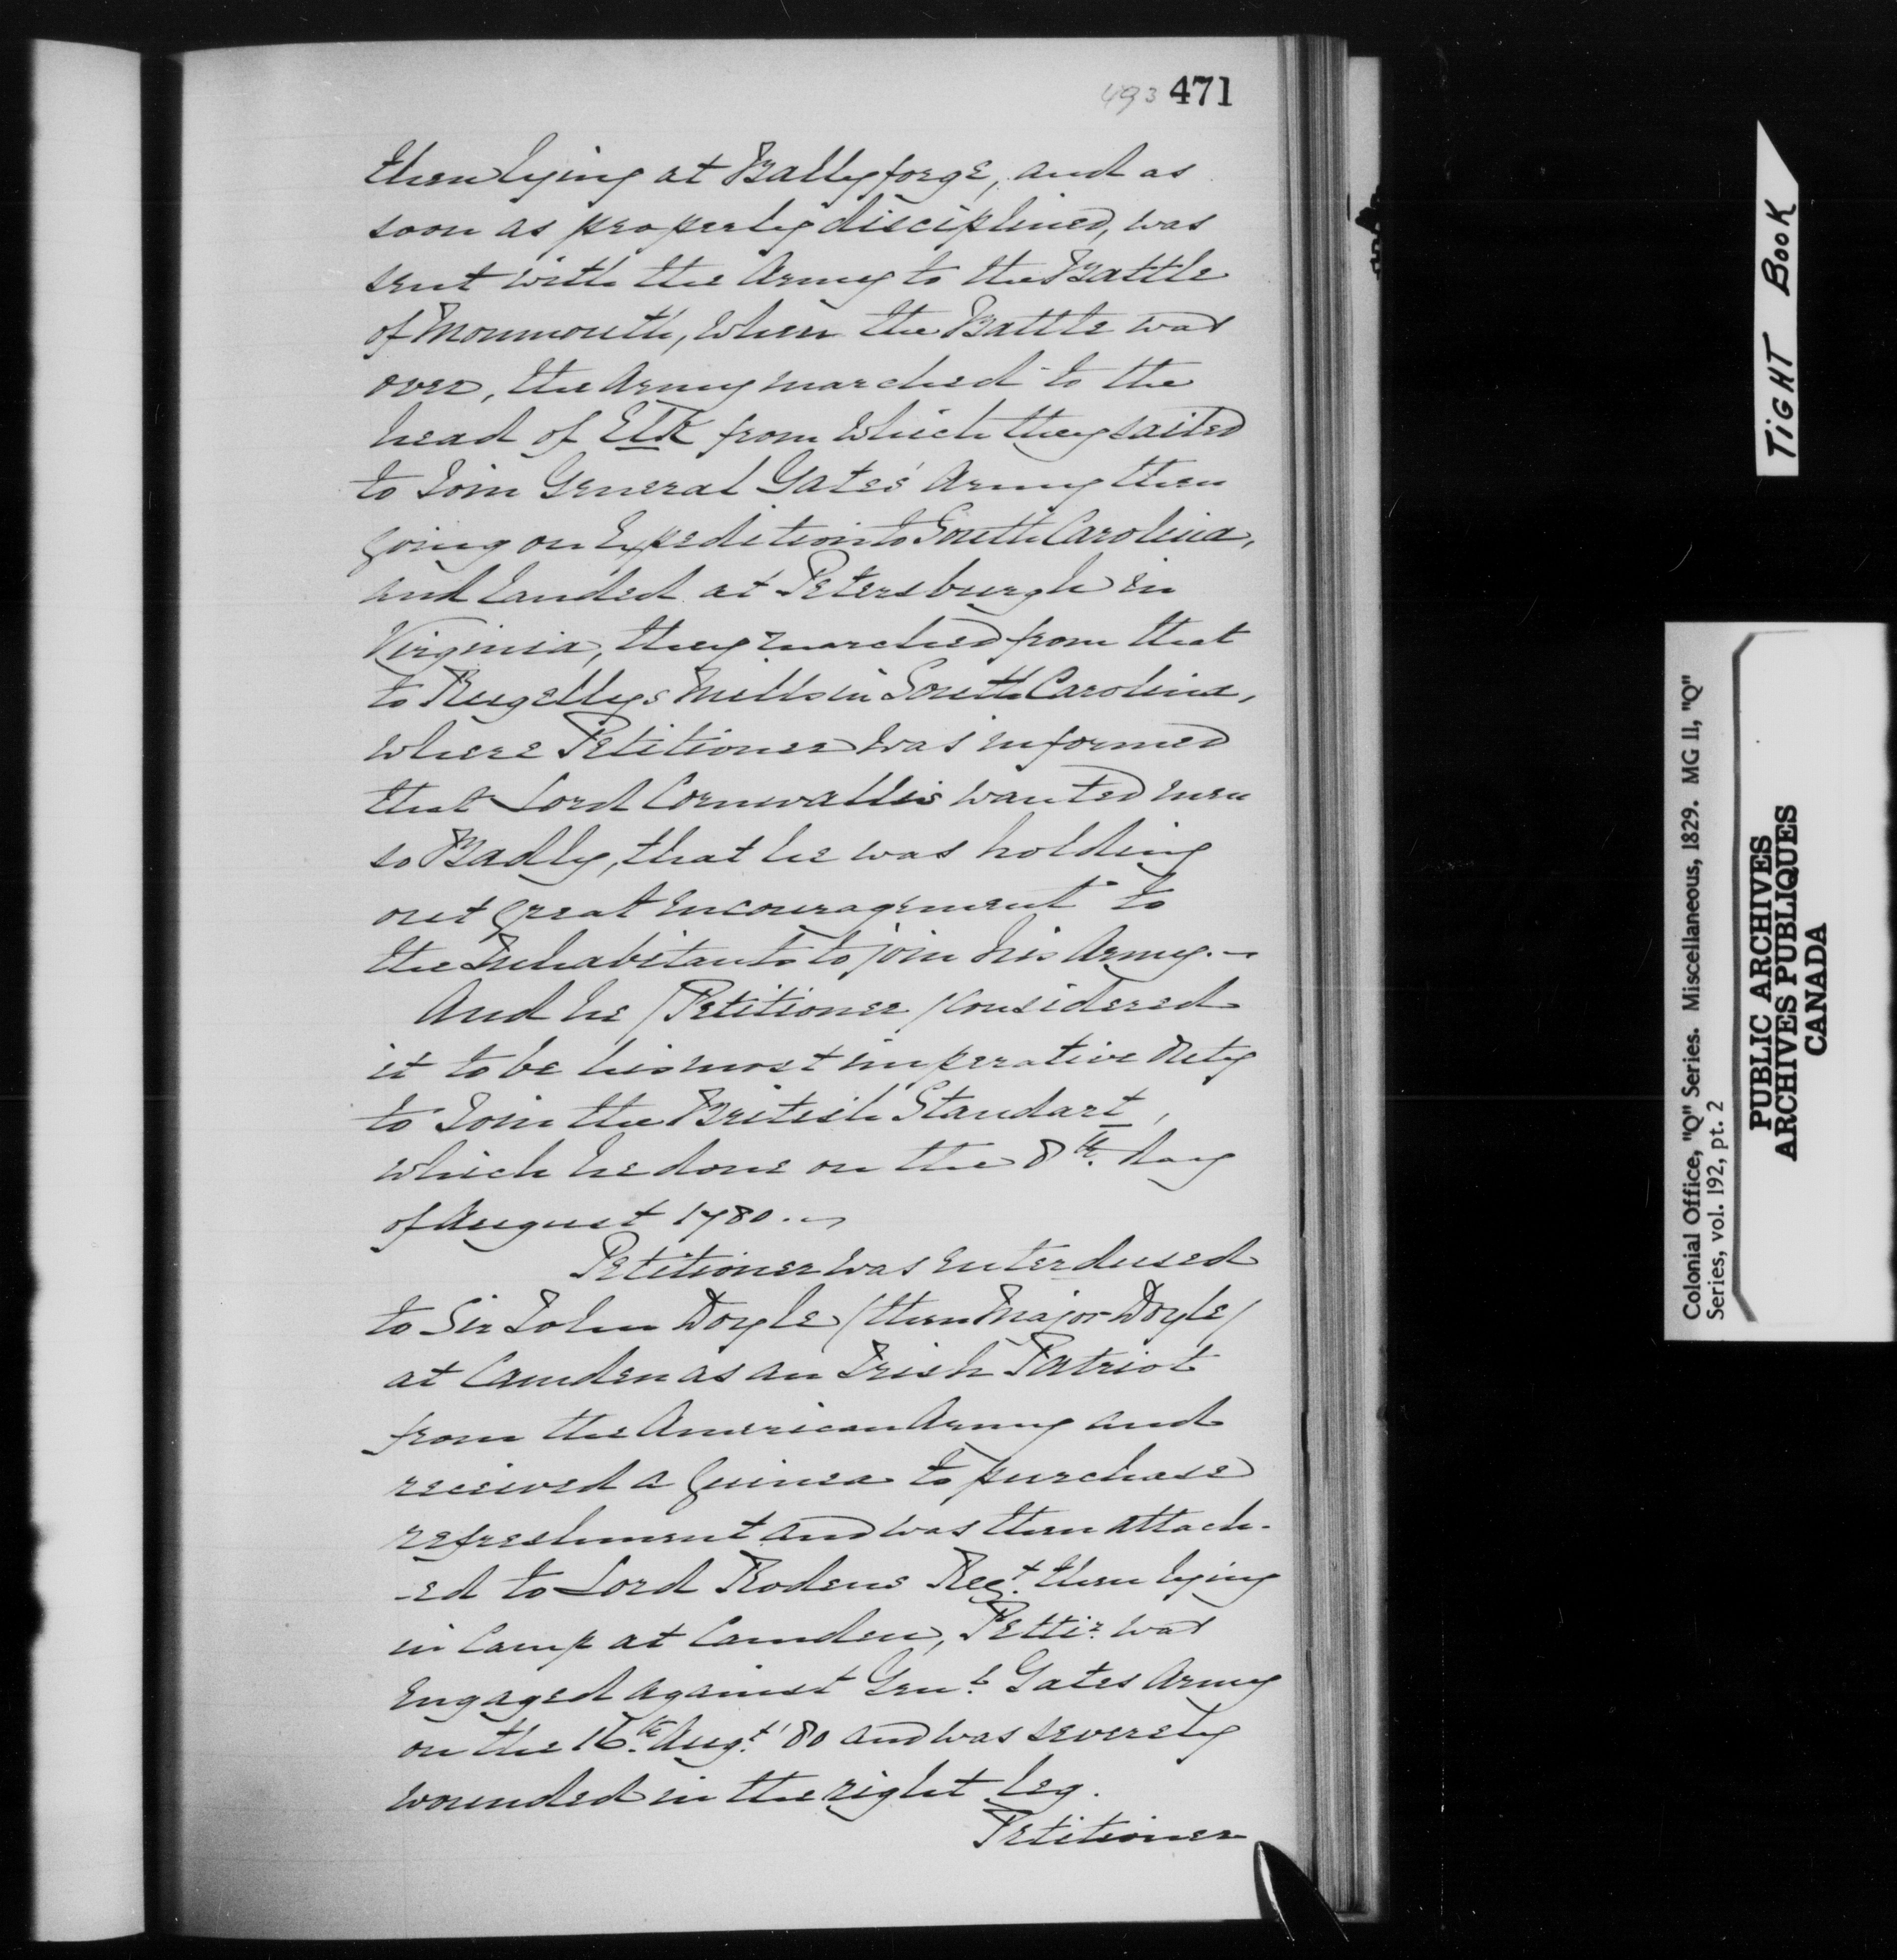 493 471
then lying at Ballyforge, and as
soon as properly disciplined, was
sent with the Army to the Battle
of Monmouth, when the Battle was
over, the Army marched to the
head of Elk from which they sailed
to Join General Gates' Army then
going on Expedition to South Carolina,
and landed at Petersburgh in
Virginia, they marched from that
to Rugellys Mills in South Carolina,
where Petitioner was informed
that Lord Cornwallis wanted men
so Badly, that he was holding
out great encouragement to
the Inhabitants to join his Army.—
And he /Petitioner/ considered
it to be his most imperative Duty
to Join the British Standart,
which he done on the 8th. Day
of August 1780.—
Petitioner was enterdused
to Sir John Doyle /then Major Doyle/
at Camden as an Irish Patriot
from the American Army and
received a Guinea to purchase
refreshment and was then attach-
-ed to Lord Rodens Regt. then lying
in Camp at Camden, Pettir. was
Engaged against Genl. Gates Army
on the 16th. Augt. '80 and was severely
wounded in the right leg.
Petitioner
TIGHT BOOK
Colonial Office, "Q" Series. Miscellaneous, 1829. MG 11, "Q"
Series, vol. 192, pt. 2
PUBLIC ARCHIVES
ARCHIVES PUBLIQUES
CANADA